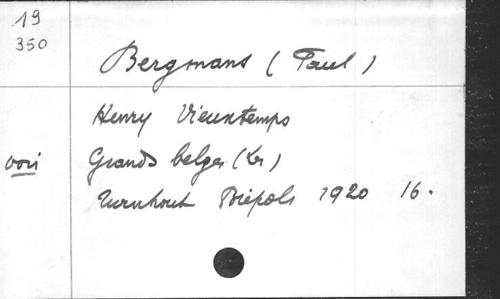 19
350
Bergmans (Paul)
Henry Vieuxtemps
voir Grands belges (Les)
Turnhout Brépols 1920 16.